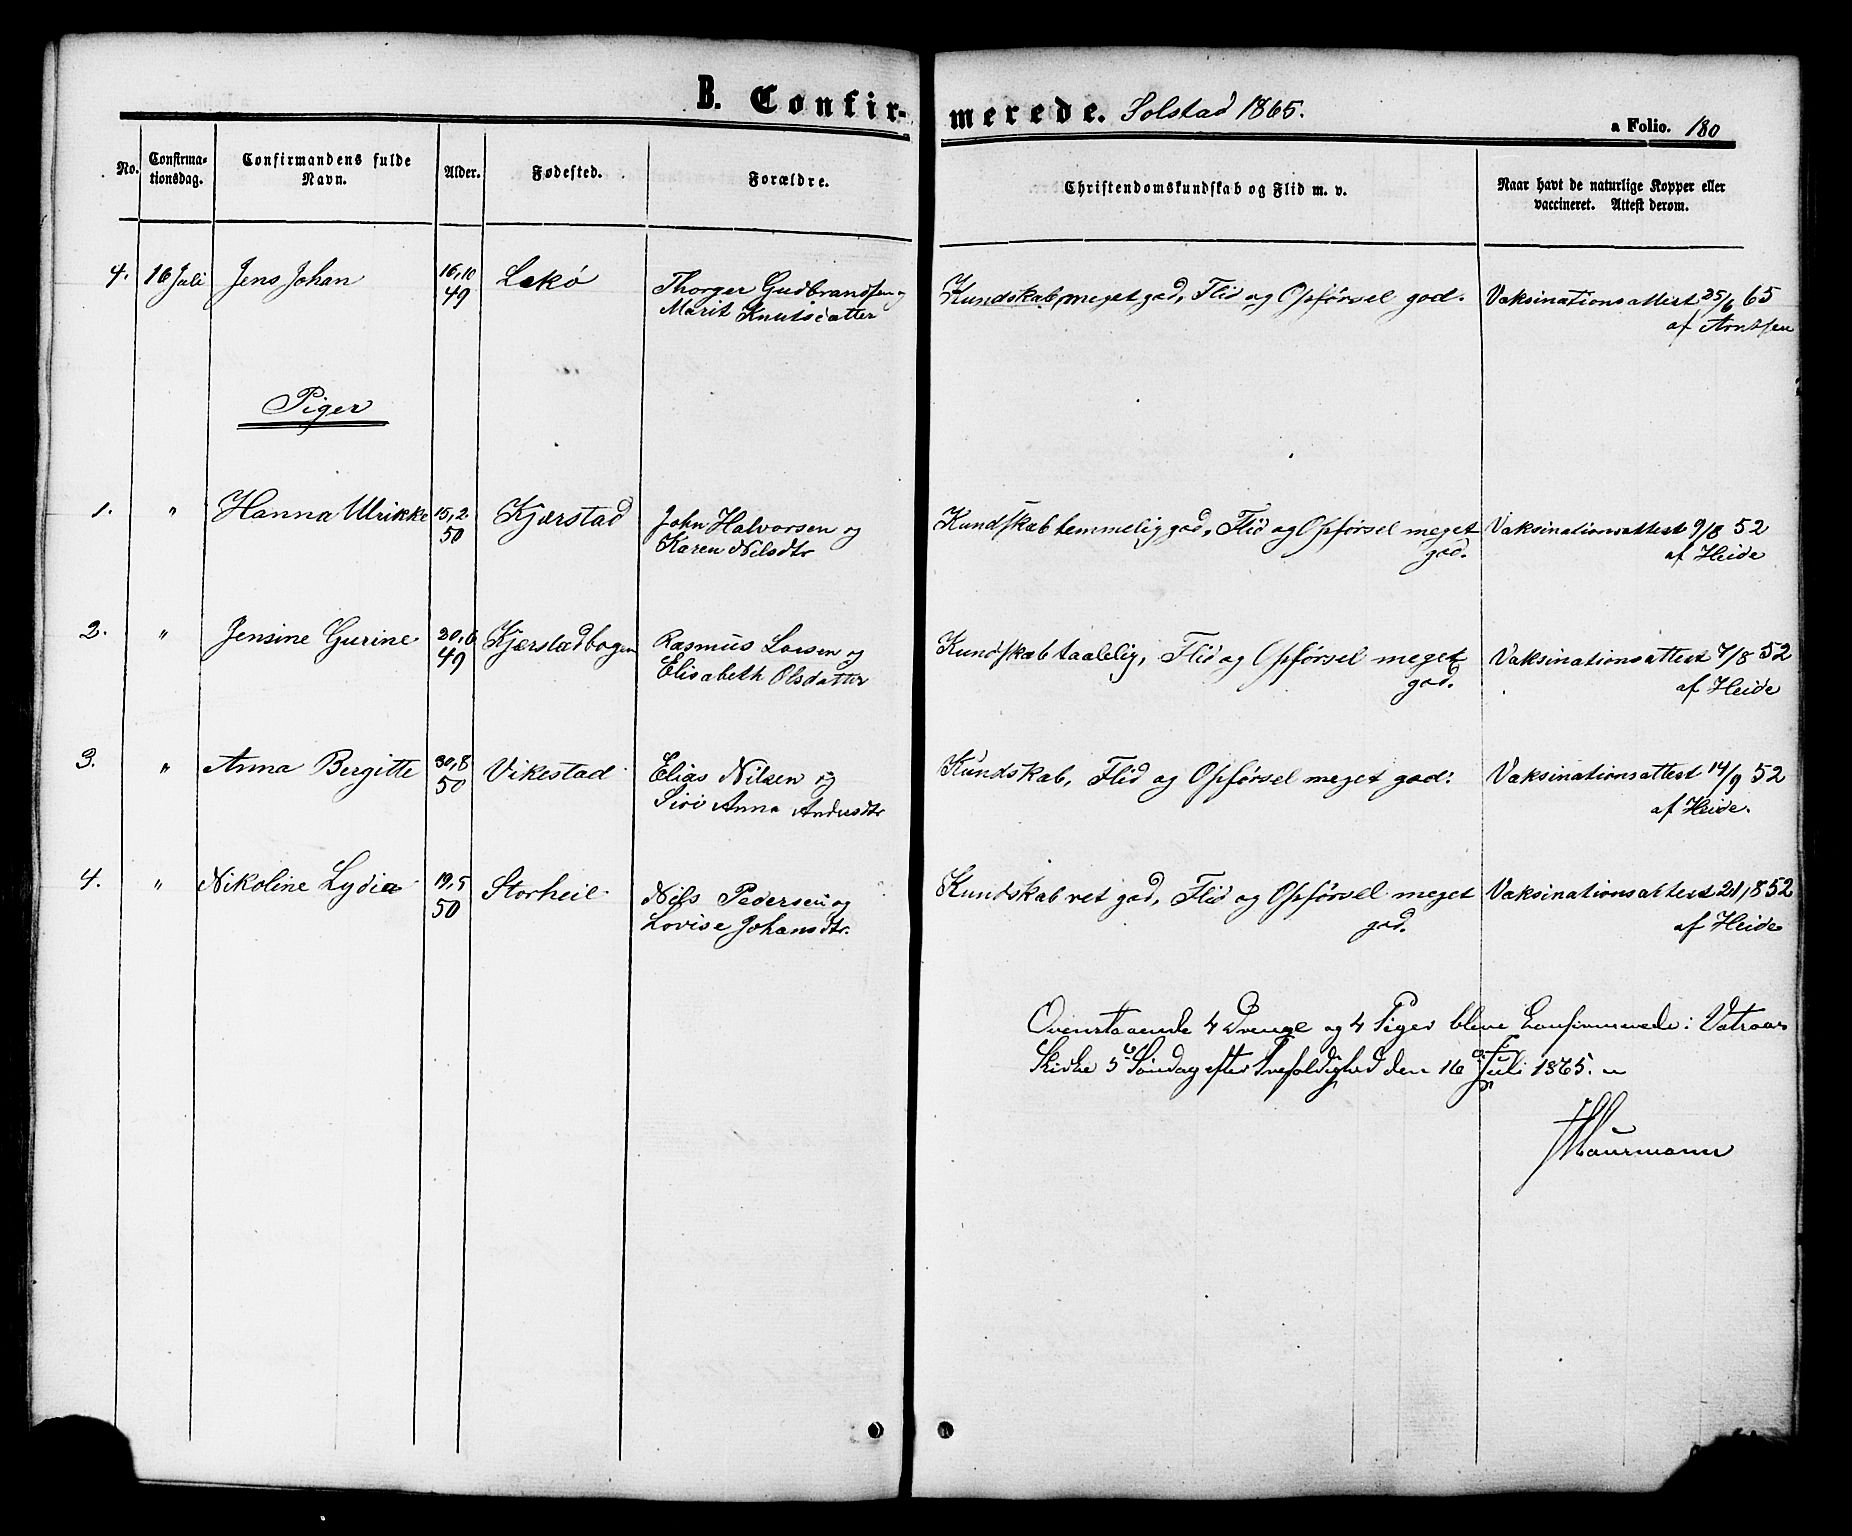 B. Confirmerede. Solstad 1865.
a Folio. 180
No. Confirmationsdag. Confirmandens fulde Navn. Alder. Fødested. Forældre. Christendomskundskab og Flid m. v. Naar havt de naturlige Kopper eller vaccineret. Attest derom.
4. 16 Juli Jens Johan 16,10 Lekø Thorger Gudbrandsen og Kundskab meget god, Flid og Opførsel god. Vaksinationsattest 25/6 65
49 Marit Knutsdatter af Arntsen
Piger
1. " Hanna Ulrikke 15,2 Kjærstad John Halvorsen og Kundskab temmelig god, Flid og Opførsel meget Vaksinationsattest 9/8 52
50 Karen Nilsdtr god. af Heide
2. " Jensine Gurine 20,6 Kjærstadbogen Rasmus Larsen og Kundskab taalelig, Flid og Opførsel meget Vaksinationsattest 7/8 52
49 Elisabeth Olsdatter god. af Heide
3. " Anna Bergitte 30,8 Vikestad Elias Nilsen og Kundskab, Flid og Opførsel meget god. Vaksinationsattest 14/9 52
50 Siri Anna Andersdtr af Heide.
4. " Nikoline Lydia 19,5 Storheil Nils Pedersen og Kundskab ret god, Flid og Opførsel meget Vaksinationsattest 21,8 52
50 Lovise Johansdtr. god. af Heide
Ovenstaaende 4 Drenge og 4 Piger bleve Confirmerede i Vatraas
Kirke 5te Søndag efter Trefoldighed den 16de Juli 1865.